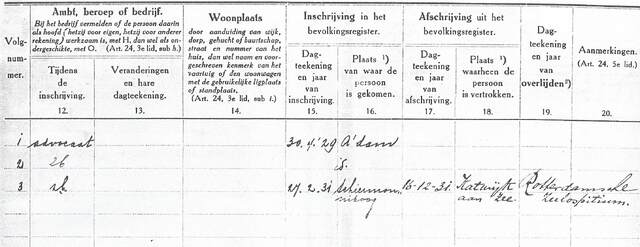 Volg-
num-
mer.
Ambt, beroep of bedrijf.
Bij het bedrijf vermelden of de persoon daarin
als hoofd (hetzij voor eigen, hetzij voor andere
rekening) werkzaam is, met H, dan wel als on-
dergeschikte, met O. (Art. 24, 3e lid, sub h.)
Tijdens
de
inschrijving.
12.
Veranderingen
en hare
dagteekening.
13.
Woonplaats
door aanduiding van wijk,
dorp, gehucht of buurtschap,
straat en nummer van het
huis, dan wel naam en voor-
geschreven kenmerk van het
vaartuig of den woonwagen
met de gebruikelijke ligplaats
of standplaats.
(Art. 24, 3e lid, sub i.)
14.
Inschrijving in het
bevolkingsregister.
Dag-
teekening
en jaar
van
inschrijving.
15.
Plaats ¹)
van waar de
persoon
is gekomen.
16.
Afschrijving uit het
bevolkingsregister.
Dag-
teekening
en jaar
van
afschrijving.
17.
Plaats ¹)
waarheen de
persoon
is vertrokken.
18.
Dag-
teekening
en jaar
van
overlijden²)
19.
Aanmerkingen.
(Art. 24, 5e lid.)
20.
1 advocaat 30.4.'29 A'dam
2 id.
3 27.2.31 Schiermon- 15-12-31 Katwijk Rotterdamsche
nikoog aan Zee Zeehospitium.